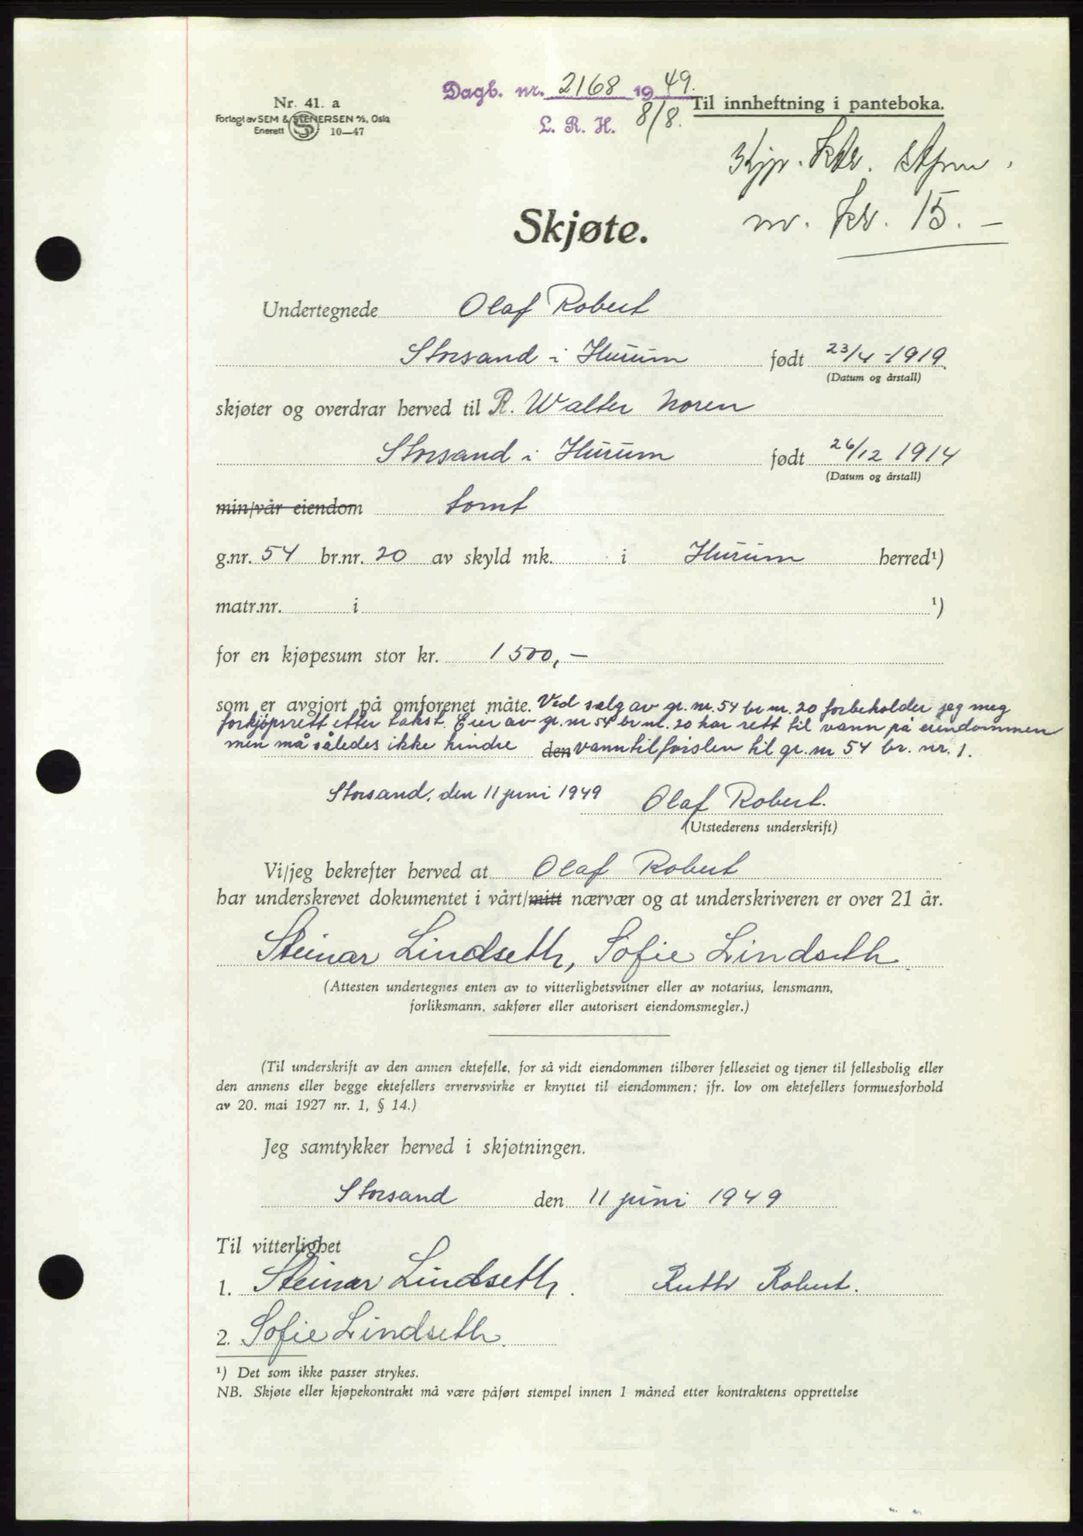 Nr. 41. a
Forlagt av SEM & STENERSEN A/S, Oslo
Enerett S 10—47
Dagb. nr. 2168 1949.
L. R. H. 8/8.
Til innheftning i panteboka.
Kjp. kr.
nr. kr. 15.–
Skjøte.
Undertegnede Olaf Robert
Storsand i Hurum født 23/4-1919
(Datum og årstall)
skjøter og overdrar herved til R. Walter Noren
Storsand i Hurum født 26/12 1914
(Datum og årstall)
min/vår eiendom tomt
g.nr. 54 br.nr. 20 av skyld mk. i Hurum herred¹)
matr.nr. i ¹)
for en kjøpesum stor kr. 1500,–
som er avgjort på omforenet måte. Ved salg av gr. nr. 54 br. nr. 20 forbeholder jeg meg
forkjøpsrett etter takst. Eier av gr. nr 54 br nr. 20 har rett til vann på eiendommen
men må således ikke hindre den vanntilførslen til gr. nr 54 br. nr. 1.
Storsand, den 11 juni 1949 Olaf Robert.
(Utstederens underskrift)
Vi/jeg bekrefter herved at Olaf Robert
har underskrevet dokumentet i vårt/mitt nærvær og at underskriveren er over 21 år.
Steinar Lindseth, Sofie Lindseth
(Attesten undertegnes enten av to vitterlighetsvitner eller av notarius, lensmann,
forliksmann, sakfører eller autorisert eiendomsmegler.)
(Til underskrift av den annen ektefelle, for så vidt eiendommen tilhører felleseiet og tjener til fellesbolig eller
den annens eller begge ektefellers ervervsvirke er knyttet til eiendommen; jfr. lov om ektefellers formuesforhold
av 20. mai 1927 nr. 1, § 14.)
Jeg samtykker herved i skjøtningen.
Storsand den 11 juni 1949
Til vitterlighet
1. Steinar Lindseth. Ruth Robert.
2. Sofie Lindseth.
¹) Det som ikke passer strykes.
NB. Skjøte eller kjøpekontrakt må være påført stempel innen 1 måned etter kontraktens opprettelse